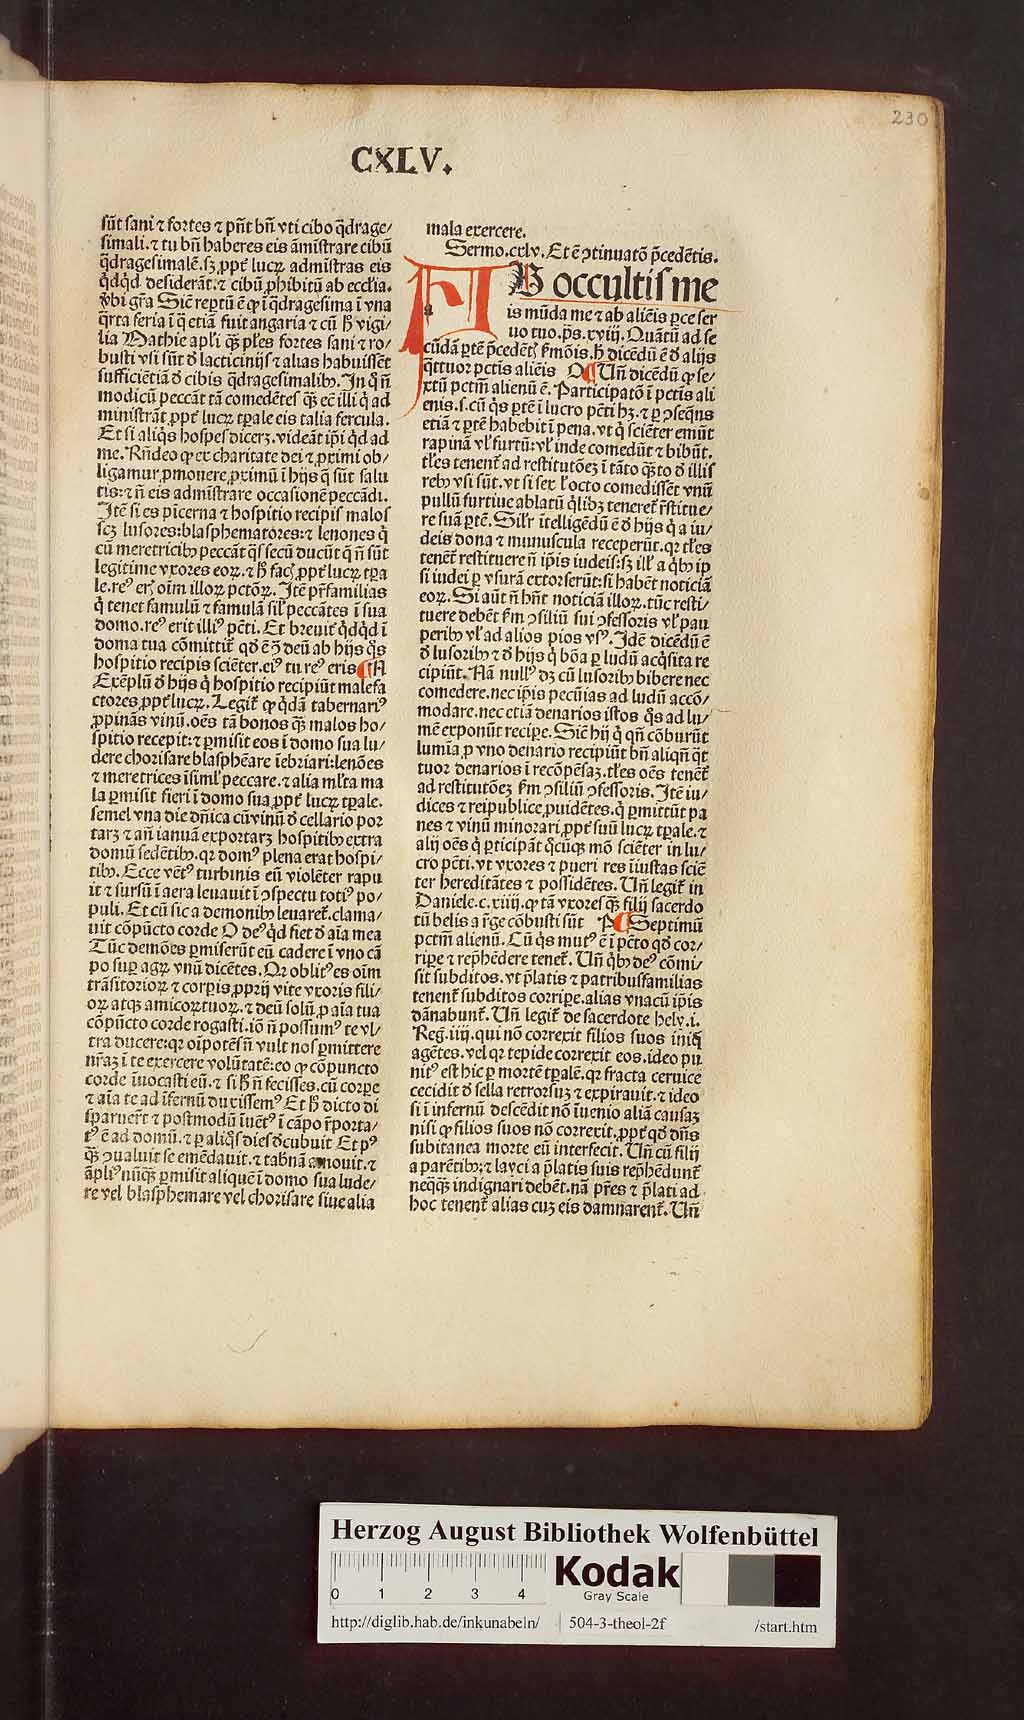 230
CXLV.
sūt sani ⁊ fortes ⁊ pn̄t bn̄ vti cibo q̄drage/
simali. ⁊ tu bn̄ haberes eis āmistrare cibū
q̄dragesimalē. sꝫ ꝓpt̄ lucꝝ admistras eis
q̄dq̄d desiderāt: ⁊ cibū ꝓhibitū ab eccl̄ia.
v̄bi gr̄a Sic̄ reptū ē ꝙ ī q̄dragesima ī vna
q̄rta feria ī q̄ etiā fuit angaria ⁊ cū hͦ vigi/
lia Mathie apl̄i qꝫ pl̄es fortes sani ⁊ ro/
busti vsi sūt d̄ lacticinijs ⁊ alias habuissēt
sufficiētiā d̄ cibis q̄dragesimalibꝰ. In q̄ n̄
modicū peccāt tā comedētes qꝫ ec̄ illi q̄ ad
ministrāt ꝓpt̄ lucꝝ tp̄ale eis talia fercula.
Et si aliq̄s hospes dicerꝫ. videāt ip̄i q̄d ad
me. Rn̄deo ꝙ ex charitate dei ⁊ ꝓximi ob/
ligamur ꝓmouere ꝓximū ī hijs q̄ sūt salu
tis: ⁊ n̄ eis admistrare occasionē peccādi.
Itē si es pīcerna ⁊ hospitio recipis malos
scꝫ lusores: blasphematores: ⁊ lenones q̄
cū meretricibꝰ peccāt q̄s secū ducūt q̄ n̄ sūt
legitime vxores eoꝝ. ⁊ hͦ facꝫ ꝓpt̄ lucꝝ tp̄a
le. reꝰ erꝫ oīm illoꝝ pctōꝝ. Itē pr̄familias
q̄ tenet famulū ⁊ famulā sil̄ peccātes ī sua
domo. reꝰ erit illiꝰ pc̄ti. Et breuit̄ q̄dq̄d ī
domo tua cōmittit̄ qd̄ ē ꝯ deū ab hijs q̄s
hospitio recipis sciēter. eiꝰ tu reꝰ eris ¶ N
Exēplū d̄ hijs q̄ hospitio recipiūt malefa
ctores ꝓpt̄ lucꝝ. Legit̄ ꝙ q̄dā tabernariꝰ
ꝓpinās vinū. oēs tā bonos qꝫ malos ho/
spitio recepit: ⁊ ꝑmisit eos ī domo sua lu/
dere chorisare blasphēare īebriari: lenōes
⁊ meretrices īsiml̄ peccare. ⁊ alia ml̄ta ma
la ꝑmisit fieri ī domo sua ꝓpt̄ lucꝝ tp̄ale.
semel vna die dn̄ica cū vinū d̄ cellario por
tarꝫ ⁊ an̄ ianuā exportarꝫ hospitibꝰ extra
domū sedētibꝰ. qr domꝰ plena erat hospi/
tibꝰ. Ecce vētꝰ turbinis eū violēter rapu
it ⁊ sursū ī aera leuauit ī ꝯspectu totiꝰ po/
puli. Et cū sic a demonibꝰ leuaret̄. clama/
uit cōpūcto corde O deꝰ q̄d fiet d̄ aīa mea
Tūc demōes ꝑmiserūt eū cadere ī vno cā
po suꝑ agꝝ vnū dicētes. Qr oblitꝰ es oīm
trāsitorioꝝ ⁊ corpis ꝓprij vite vxoris fili/
oꝝ atqꝫ amicoꝝ tuoꝝ. ⁊ deū solū ꝓ aīa tua
cōpūcto corde rogasti. iō n̄ possumꝰ te vl/
tra ducere: qr oīpotēs n̄ vult nos ꝑmittere
nr̄aꝫ ī te exercere volūtatē: eo ꝙ cōpuncto
corde īuocasti eū. ⁊ si hͦ n̄ fecisses. cū corꝑe
⁊ aīa te ad īfernū duxissemꝰ Et hͦ dicto di
sparuer̄t ⁊ postmodū īuētꝰ ī cāpo r̄porta/
tꝰ ē ad domū. ⁊ ꝑ aliq̄s dies d̄cubuit Et pꝰ
qꝫ ꝯualuit se emēdauit. ⁊ tabn̄ā amouit. ⁊
āpliꝰ nūqꝫ ꝑmisit aliquē ī domo sua lude/
re vel blasphemare vel chorisare siue alia
mala exercere.
Sermo. cxlv. Et ē ꝯtinuatō p̄cedētis.
AB occultis me
is mūda me ⁊ ab aliēis ꝑce ser
uo tuo. ps̄. xviij. Quātū ad se
cūdā ꝑtē p̄cedēt̄ ẜmōis. hͦ dicēdū ē d̄ alijs
q̄ttuor pctīs aliēis O ¶ Un̄ dicēdū ꝙ se/
xtū pctm̄ alienū ē. Participatō ī pctīs ali
enis. s. cū q̄s ꝑtē ī lucro pc̄ti hꝫ. ⁊ ꝑ ꝯseq̄ns
etiā ⁊ ꝑtē habebit ī pena. vt q̄ sciēter emūt
rapinā vl̄ furtū: vl̄ inde comedūt ⁊ bibūt.
tl̄es tenent̄ ad restitutōeꝫ ī tāto qꝫto d̄ illis
rebꝰ vsi sūt. vt si sex l̄ octo comedissēt vnū
pullū furtiue ablatū q̄libꝫ teneret̄ r̄stitue/
re suā ꝑtē. Sil̄r ītelligēdū ē d̄ hijs q̄ a iu/
deis dona ⁊ munuscula receperūt. qr tl̄es
tenēt̄ restituere n̄ ip̄is iudeis: sꝫ ill̄ a q̄bꝰ ip
si iudei ꝑ vsurā extorserūt: si habēt noticiā
eoꝝ. Si aūt n̄ hn̄t noticiā illoꝝ. tūc resti/
tuere debēt ẜm ꝯsiliū sui ꝯfessoris vl̄ pau
peribꝰ vl̄ ad alios pios vsꝰ. Idē dicēdū ē
d̄ lusoribꝰ ⁊ d̄ hijs q̄ bōa ꝑ ludū acq̄sita re
cipiūt. Nā nullꝰ dꝫ cū lusoribꝰ bibere nec
comedere. nec ip̄is pecūias ad ludū accō/
modare. nec etiā denarios istos q̄s ad lu/
mē exponūt recipe. Sic̄ hij q̄ qn̄ cōburūt
lumīa ꝓ vno denario recipiūt bn̄ aliqn̄ q̄t
tuor denarios ī recōpēsaꝫ. tl̄es oēs tenēt̄
ad restitutōeꝫ ẜm ꝯsiliū ꝯfessoris. Itē iu/
dices ⁊ reipublice ꝓuidētes. q̄ ꝑmittūt pa
nes ⁊ vinū minorari ꝓpt̄ suū lucꝝ tp̄ale. ⁊
alij oēs q̄ ꝑticipāt q̄cūqꝫ mō sciēter in lu/
cro pc̄ti. vt vxores ⁊ pueri res īiustas sciē
ter hereditātes ⁊ possidētes. Un̄ legit̄ in
Daniele. c. xiiij. ꝙ tā vxores qꝫ filij sacerdo
tū belis a r̄ge cōbusti sūt P ¶ Septimū
pctm̄ alienū. Cū q̄s mutꝰ ē ī pc̄to qd̄ cor/
riꝑe ⁊ rep̄hēdere tenet̄. Un̄ q̄bꝰ deꝰ cōmi/
sit subditos. vt p̄latis ⁊ patribusfamilias
tenent̄ subditos corriꝑe. alias vnacū ip̄is
dānabunt̄. Un̄ legit̄ de sacerdote hely. i.
Reg. iiij. qui nō correxit filios suos iniq̄
agētes. vel qr tepide correxit eos. ideo pu
nitꝰ est hic ꝑ mortē tp̄alē. qr fracta ceruice
cecidit d̄ sella retrorsuꝫ ⁊ expirauit. ⁊ ideo
si ī infernū descēdit nō īuenio aliā causaꝫ
nisi ꝙ filios suos nō correxit. ꝓpt̄ qd̄ dn̄s
subitanea morte eū interfecit. Un̄ cū filij
a parētibꝰ: ⁊ layci a p̄latis suis rep̄hēdunt̄
neq̄qꝫ indignari debēt. nā pr̄es ⁊ p̄lati ad
hoc tenent̄ alias cuꝫ eis damnarent̄. Un̄
Herzog August Bibliothek Wolfenbüttel
0 1 2 3 4
Kodak
Gray Scale
http://diglib.hab.de/inkunabeln/ 504-3-theol-2f /start.htm